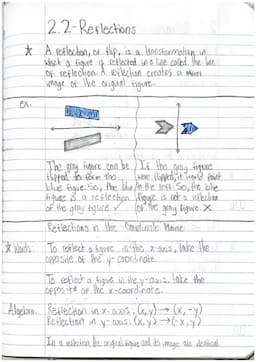 2.2-Reflections
* A reflection, or flip, is a transformation in
which a figure is reflected in a line called the line
of reflection. A reflection creates a mirror
image of the original figure.
ex.
The gray figure can be
flipped to form the
blue figure. So, the blue
figure is a reflection
of the gray figure. ✓
If the gray figure
were flipped, it would point
to the left. So, the blue
figure is not a reflection
of the gray figure. X
Reflections in the Coordinate Plane
* Words:
To reflect a figure in the x-axis, take the
opposite of the y-coordinate.
To reflect a figure in the y-axis, take the
opposite of the x-coordinate.
Algebra:
Reflection in x-axis: (x, y) → (x, -y)
Reflection in y-axis: (x, y) → (-x, y)
In a reflection, the original figure and its image are identical